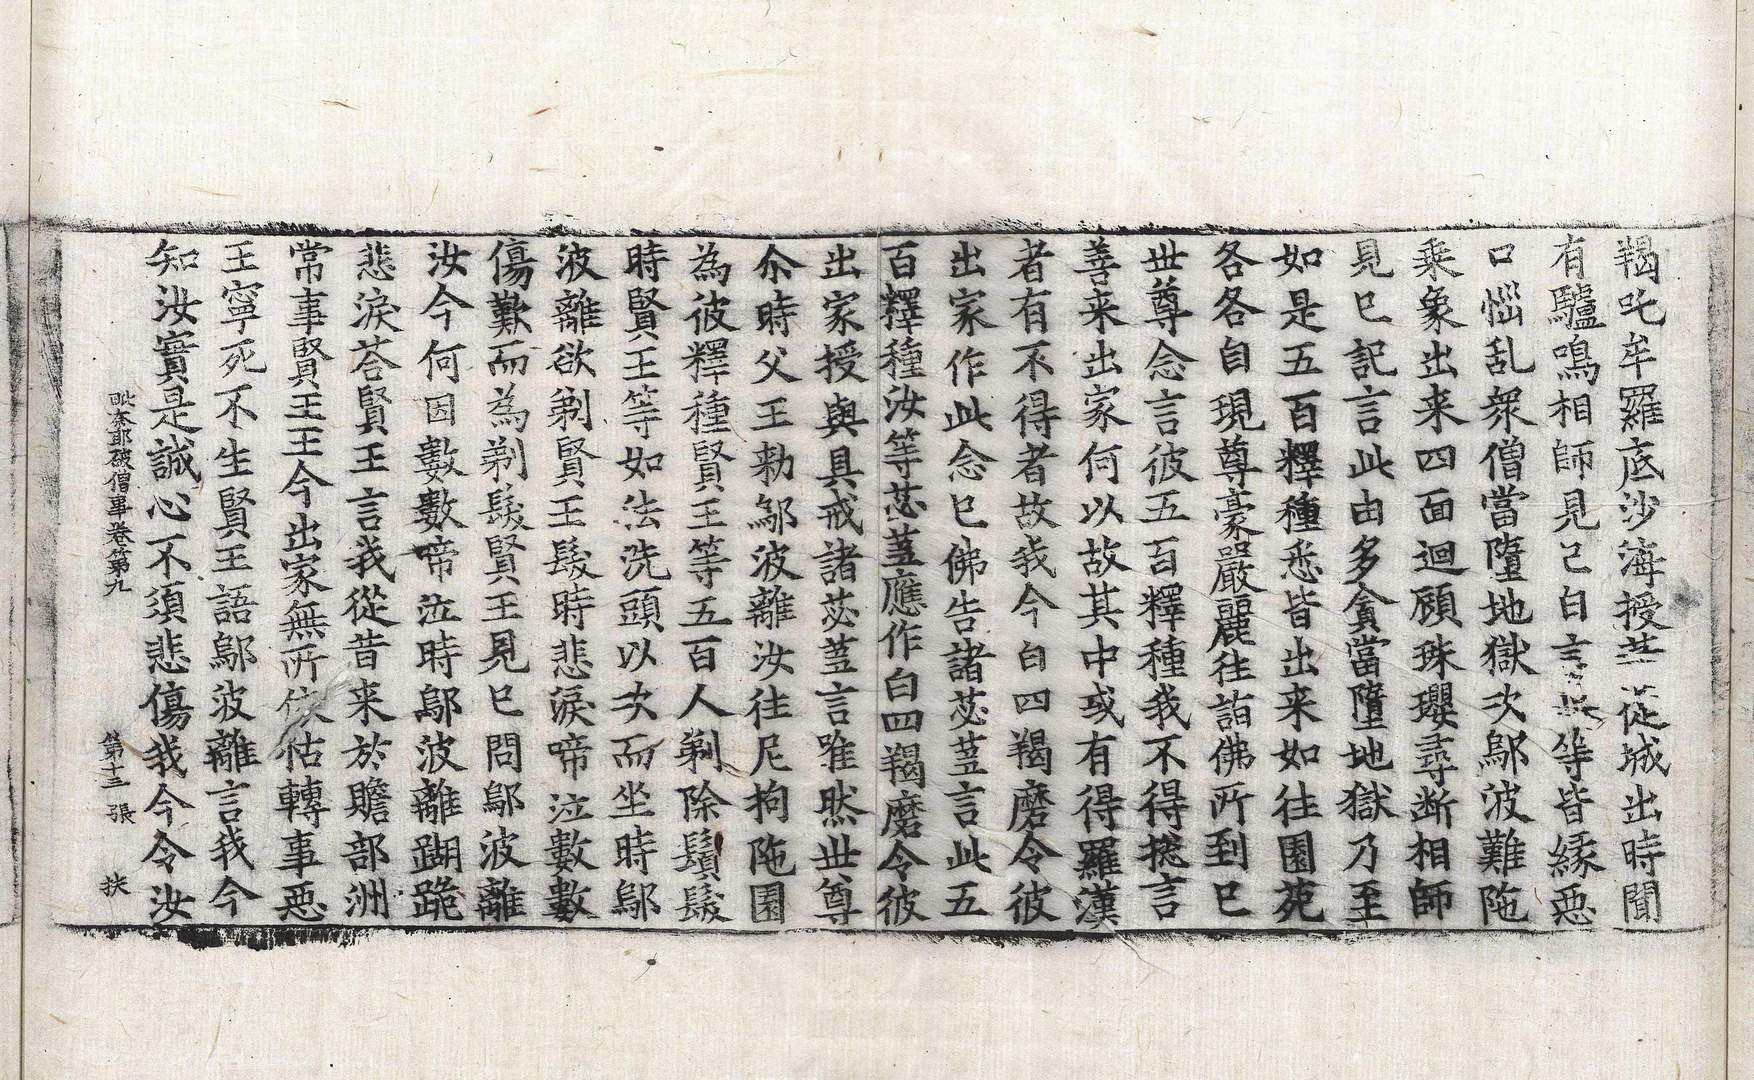 羯吒牟羅底沙海授䒭從城出時聞
有驢鳴相師見已白言等皆緣惡
口惱乱衆僧當墮地獄次鄔波難陁
乘象出来四面迴顧珠瓔尋断相師
見已記言此由多貪當墮地獄乃至
如是五百釋種悉皆出来如往園苑
各各自現尊豪嚴麗往詣佛所到已
世尊念言彼五百釋種我不得揔言
善来出家何以故其中或有得羅漢
者有不得者故我今白四羯磨令彼
出家作此念已佛告諸苾蒭言此五
百釋種汝等苾蒭應作白四羯磨令彼
出家授與具戒諸苾蒭言唯然世尊
尒時父王勑鄔波離汝往尼拘陁園
為彼釋種賢王等五百人剃除鬚髮
時賢王等如法洗頭以次而坐時鄔
波離欲剃賢王髮時悲淚啼泣數數
傷歎而為剃髮賢王見已問鄔波離
汝今何因數數啼泣時鄔波離蹦跪
悲淚荅賢王言我從昔来於贍部洲
常事賢王王今出家無所依怙轉事惡
王寧死不生賢王語鄔波離言我今
知汝實是誠心不須悲傷我今令汝
毗奈耶破僧事卷第九 第十三張 扶